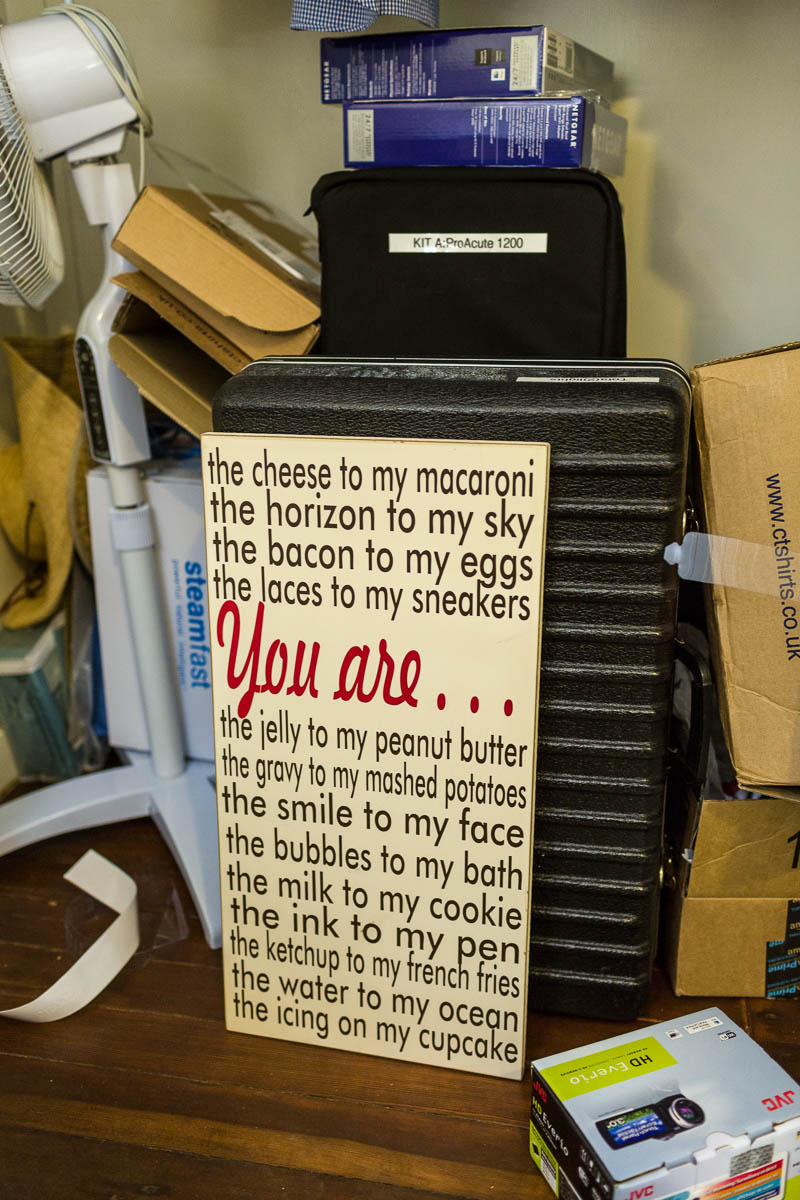 NETGEAR
24/7
NETGEAR
24/7
KIT A:ProAcute 1200
the cheese to my macaroni
the horizon to my sky
the bacon to my eggs
the laces to my sneakers
You are...
the jelly to my peanut butter
the gravy to my mashed potatoes
the smile to my face
the bubbles to my bath
the milk to my cookie
the ink to my pen
the ketchup to my french fries
the water to my ocean
the icing on my cupcake
steamfast
www.ctshirts.co.uk
Prime
HD Everio
JVC
HD Everio
3.0"
JVC